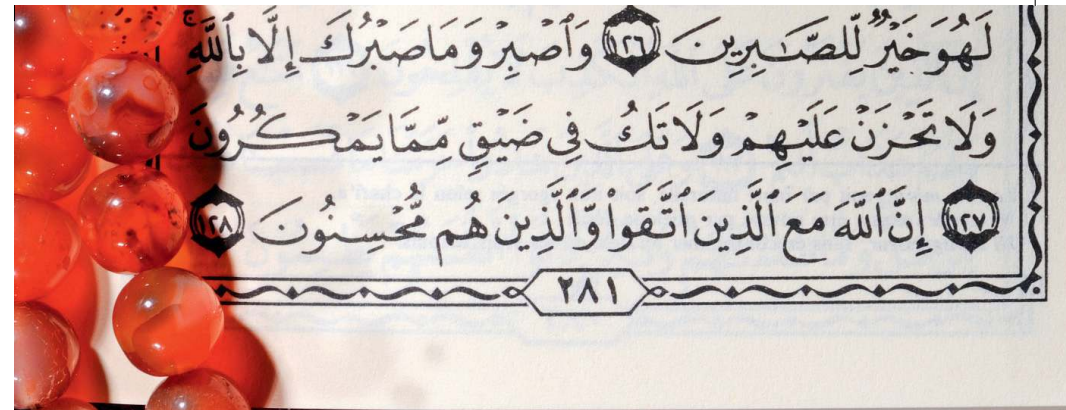 لَهُوَ خَيْرٌ لِّلصَّـٰبِرِينَ ١٢٦ وَٱصْبِرْ وَمَا صَبْرُكَ إِلَّا بِٱللَّهِ ۚ
وَلَا تَحْزَنْ عَلَيْهِمْ وَلَا تَكُ فِى ضَيْقٍ مِّمَّا يَمْكُرُونَ
١٢٧ إِنَّ ٱللَّهَ مَعَ ٱلَّذِينَ ٱتَّقَوا۟ وَّٱلَّذِينَ هُم مُّحْسِنُونَ ١٢٨
٢٨١